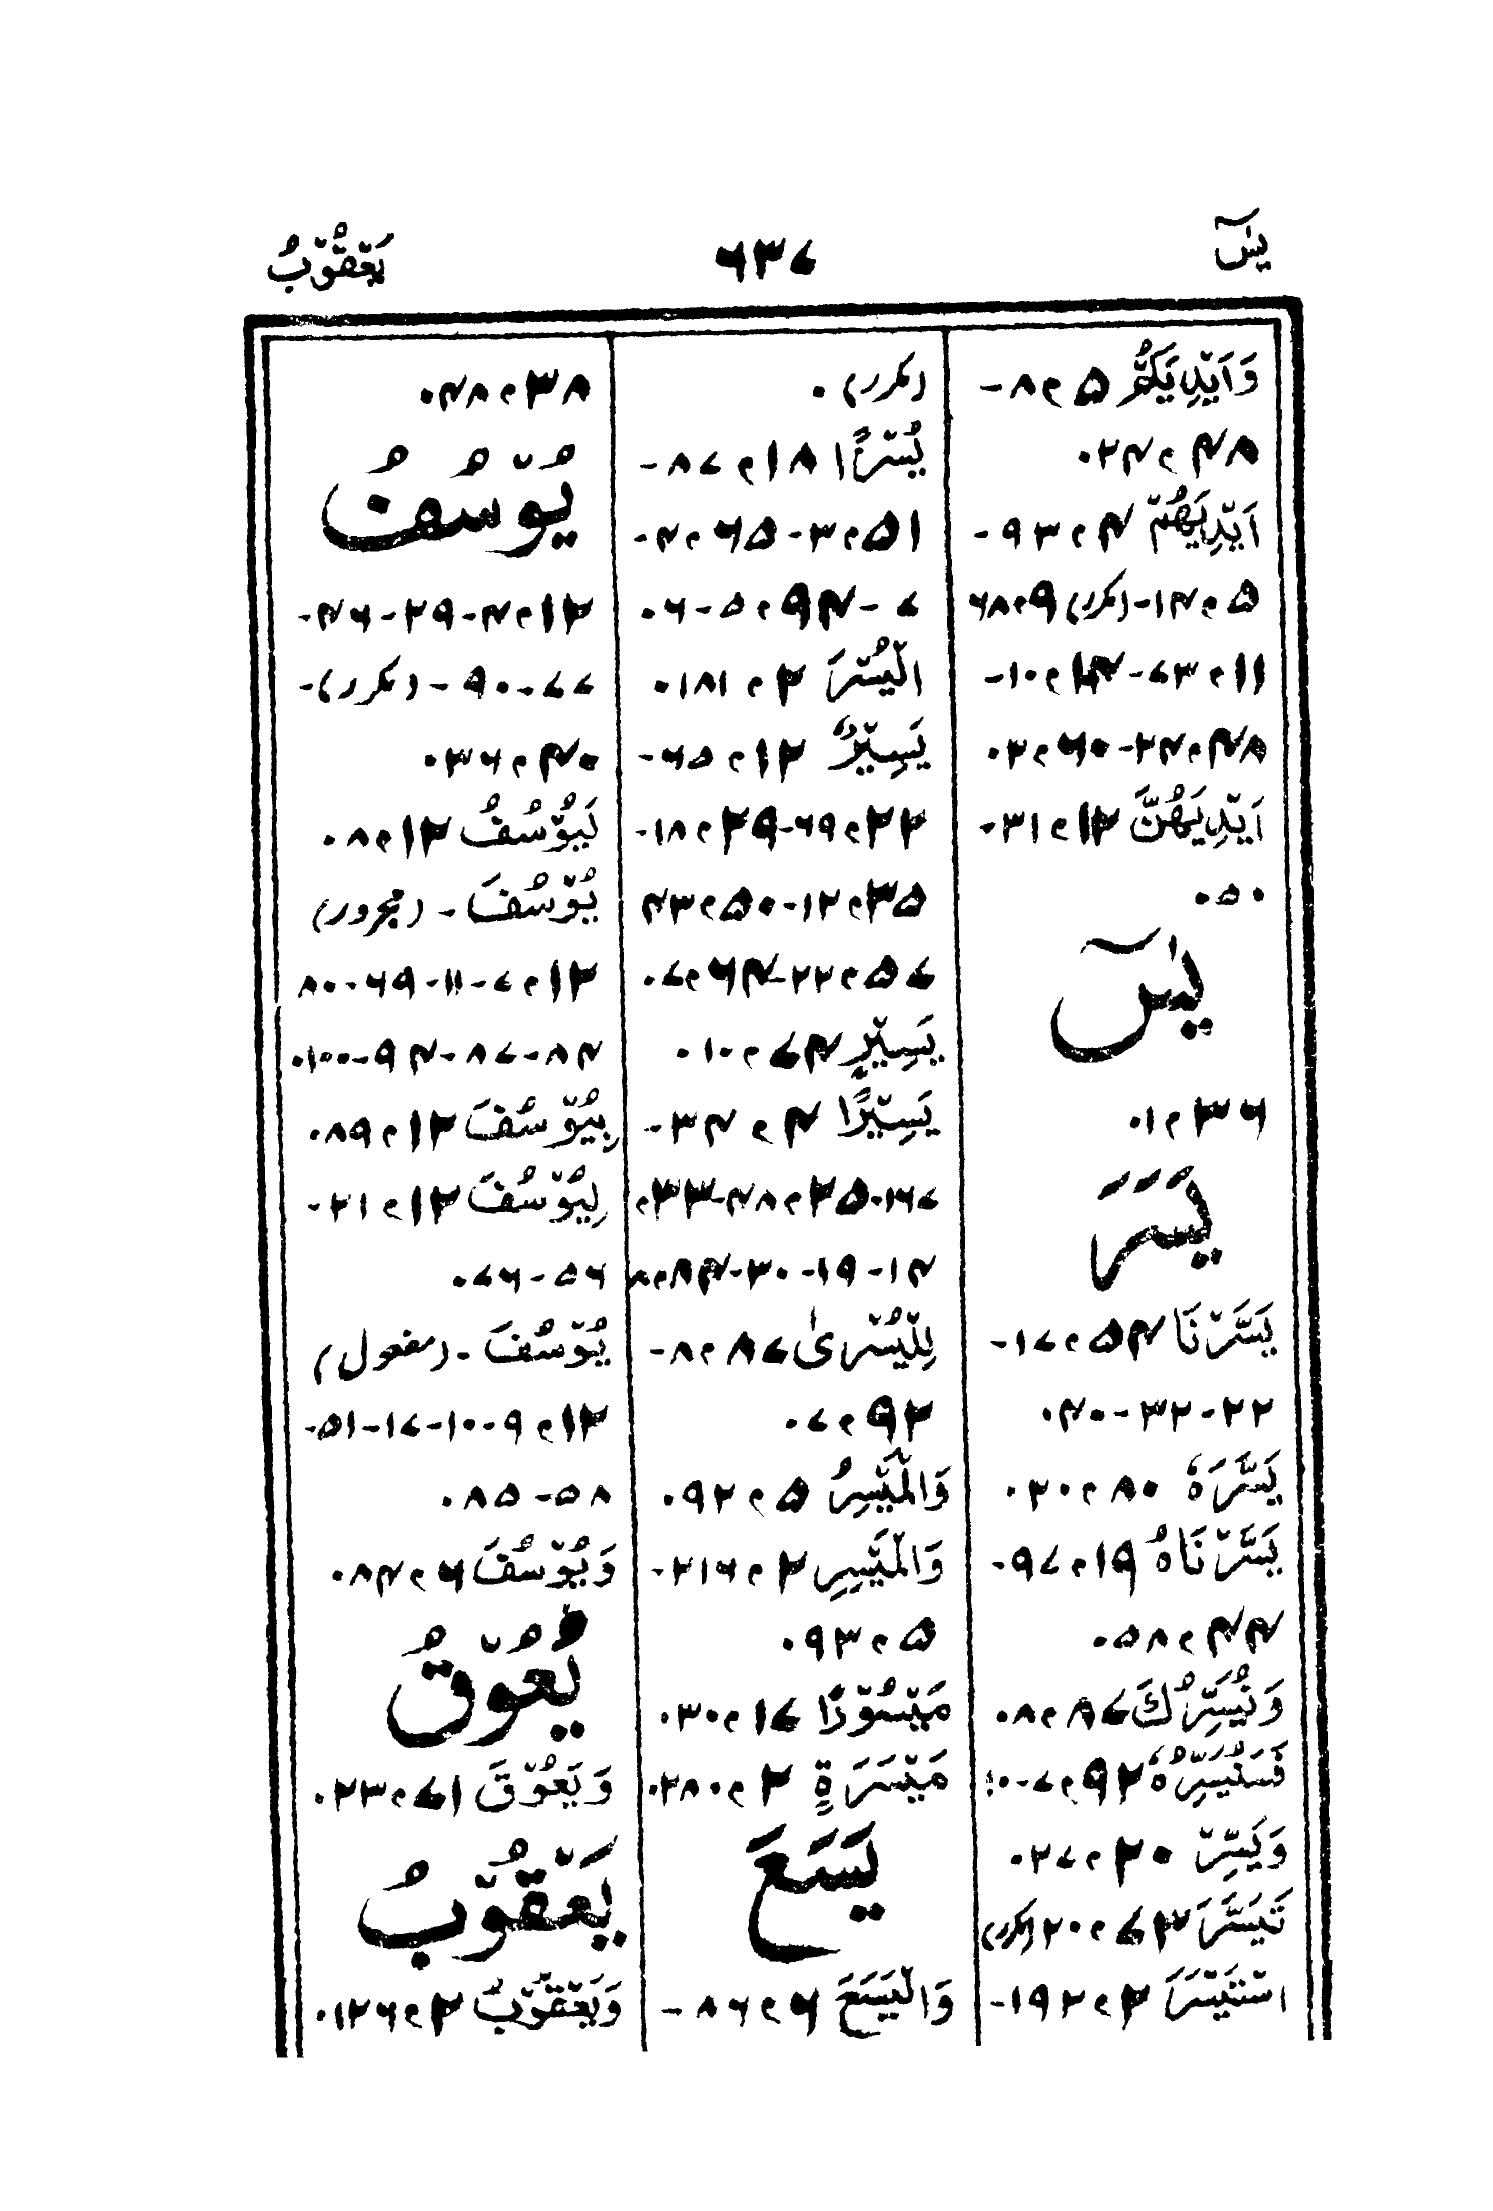 يٰسٓ
۶۳۷
يَعْقُوْبُ
وَاَيْدِيَكُمْ ۵ و ۸-
۴۸ و ۲۴.
اَيْدِيَهُمْ ۴ و ۹۳-
۵ و ۱۴-(مکرر) ۹ و ۶۸
۱۱ و ۷۳-۱۴ و ۱۰-
۴۸ و ۲۴-۶۰ و ۲.
اَيْدِيَهُنَّ ۱۲ و ۳۱-
۵۰.
يٰسٓ
۳۶ و ۱.
يَسَرَ
يَسَّرْنَا ۵۴ و ۱۷-
۲۲-۳۲-۴۰.
يَسَّرَهٗ ۸۰ و ۲۰.
يَسَّرْنَاهُ ۱۹ و ۹۷-
۴۴ و ۵۸.
وَنُيَسِّرُكَ ۸۷ و ۸.
فَسَنُيَسِّرُهٗ ۹۲ و ۷-۱۰
وَيَسِّرْ ۲۰ و ۲۷.
تَيَسَّرَ ۷۳ و ۲۰ (مکرر)
اسْتَيْسَرَ ۲ و ۱۹۲-
(مکرر).
يُسْرًا ۱۸ و ۸۷-
۵۱ و ۳-۶۵ و ۴-
۷-۹۴ و ۵-۶.
الْيُسْرَ ۲ و ۱۸۱.
يَسِيْرٌ ۱۲ و ۶۵-
۲۲ و ۶۹-۲۹ و ۱۸-
۳۵ و ۱۲-۵۰ و ۴۳
۵۷ و ۲۲-۶۴ و ۷.
يَسِيْرٍ ۷۴ و ۱۰.
يَسِيْرًا ۴ و ۳۴-
۱۶۷-۲۵ و ۴۸-۳۳ و
۱۴-۱۹-۳۰-۸۴ و ۸
لِلْيُسْرٰى ۸۷ و ۸-
۹۲ و ۷.
وَالْمَيْسِرُ ۵ و ۹۲.
وَالْمَيْسِرِ ۲ و ۲۱۶-
۵ و ۹۳.
مَيْسُوْرًا ۱۷ و ۳۰.
مَيْسَرَةٍ ۲ و ۲۸۰.
يَسَعَ
وَالْيَسَعَ ۶ و ۸۶-
۳۸ و ۴۸.
يُوْسُفُ
۱۲ و ۴-۲۹-۴۶-
۷۷-۹۰-(مکرر)-
۴۰ و ۳۶.
لَيُوْسُفُ ۱۲ و ۸.
يُوْسُفَ-(مجرور)
۱۲ و ۷-۱۱-۶۹-۸۰
۸۴-۸۷-۹۴-۱۰۰.
بِيُوْسُفَ ۱۲ و ۸۹.
لِيُوْسُفَ ۱۲ و ۲۱-
۵۶-۷۶.
يُوْسُفَ-(مفعول)
۱۲ و ۹-۱۰-۱۷-۵۱-
۵۸-۸۵.
وَيُوْسُفَ ۶ و ۸۴.
يُعُوْقُ
وَيَعُوْقَ ۷۱ و ۲۳.
يَعْقُوْبُ
وَيَعْقُوْبُ ۲ و ۱۲۶.